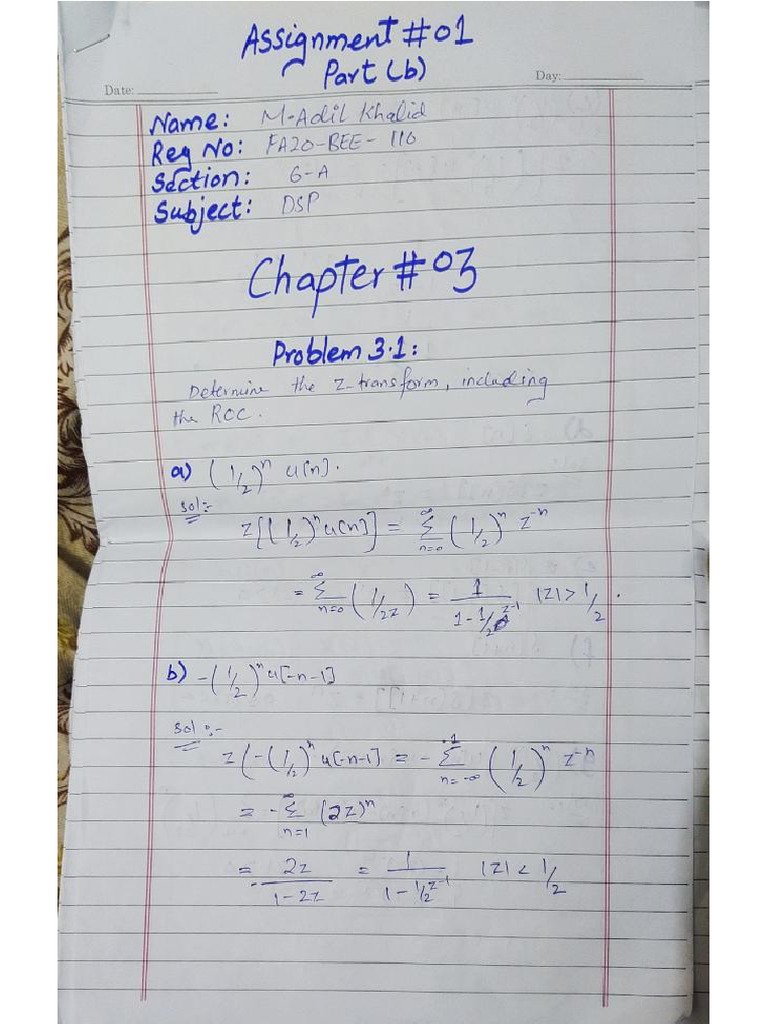 Assignment #01
Part (b)
Date: Day:
Name: M-Adil Khalid
Reg No: FA20-BEE-110
Section: 6-A
Subject: DSP
Chapter #03
Problem 3.1:
Determine the z-transform, including
the ROC.
a) (1/2)^n u[n].
Sol:-
Z[(1/2)^n u[n]] = ∑_{n=0}^{∞} (1/2)^n z^{-n}
= ∑_{n=0}^{∞} (1/2z) = 1/(1-1/2 z^{-1}) |z|>1/2.
b) -(1/2)^n u[-n-1]
Sol:-
Z(-(1/2)^n u[-n-1] = -∑_{n=-∞}^{-1} (1/2)^n z^{-n}
= -∑_{n=1}^{∞} (2z)^n
= -2z/(1-2z) = 1/(1-1/2 z^{-1}) |z|<1/2